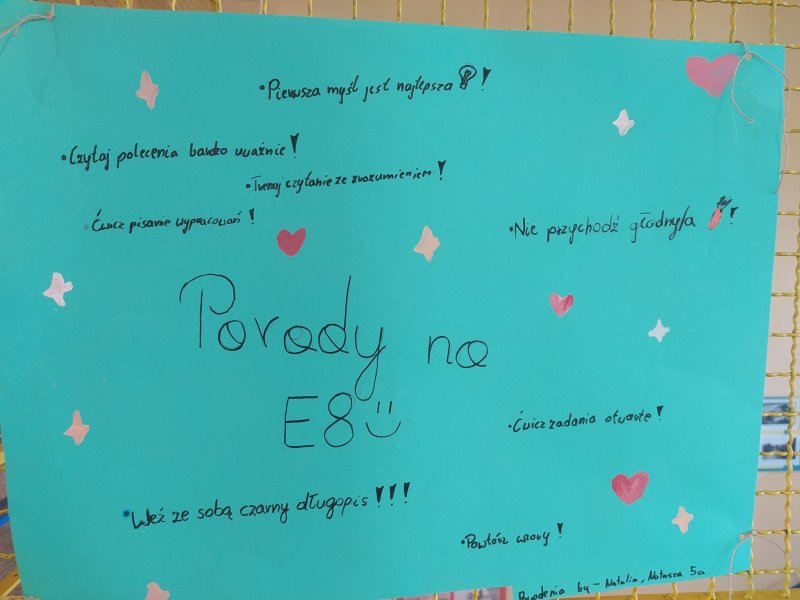 •Pierwsza myśl jest najlepsza!
•Czytaj polecenia bardzo uważnie!
•Trenuj czytanie ze zrozumieniem!
•Ćwicz pisanie wypracowań!
•Nie przychodź głodny/a!
Porady na
E8
•Ćwicz zadania otwarte!
•Weź ze sobą czarny długopis!!!
•Powtórz wzory!
by - Natalia, Natasza 5a